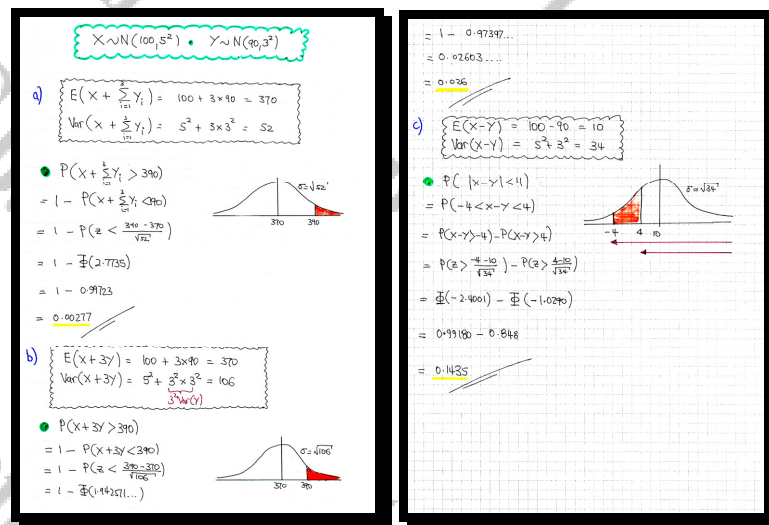 X~N(100,5²) • Y~N(90,3²)
a)
E(X + Σ³ᵢ₌₁ Yᵢ) = 100 + 3×90 = 370
Var(X + Σ³ᵢ₌₁ Yᵢ) = 5² + 3×3² = 52
P(X + Σ³ᵢ₌₁ Yᵢ > 390)
= 1 - P(X + Σ³ᵢ₌₁ Yᵢ < 390)
= 1 - P(z < (390-370)/√52)
= 1 - Φ(2.7735)
= 1 - 0.99723
= 0.00277
σ=√52
370 390
b)
E(X+3Y) = 100 + 3×90 = 370
Var(X+3Y) = 5² + 3²×3² = 106
3²Var(Y)
P(X+3Y >390)
= 1 - P(X+3Y<390)
= 1 - P(z < (390-370)/√106)
= 1 - Φ(1.942571...)
σ=√106
370 390
= 1 - 0.97397...
= 0.02603....
= 0.026
c)
E(X-Y) = 100-90 = 10
Var(X-Y) = 5²+3² = 34
P( |X-Y|<4)
= P(-4<X-Y<4)
= P(X-Y>-4)-P(X-Y>4)
= P(z> (-4-10)/√34) - P(z> (4-10)/√34)
= Φ(-2.4001) - Φ(-1.0290)
= 0.99180 - 0.848
= 0.1435
σ=√34
-4 4 10